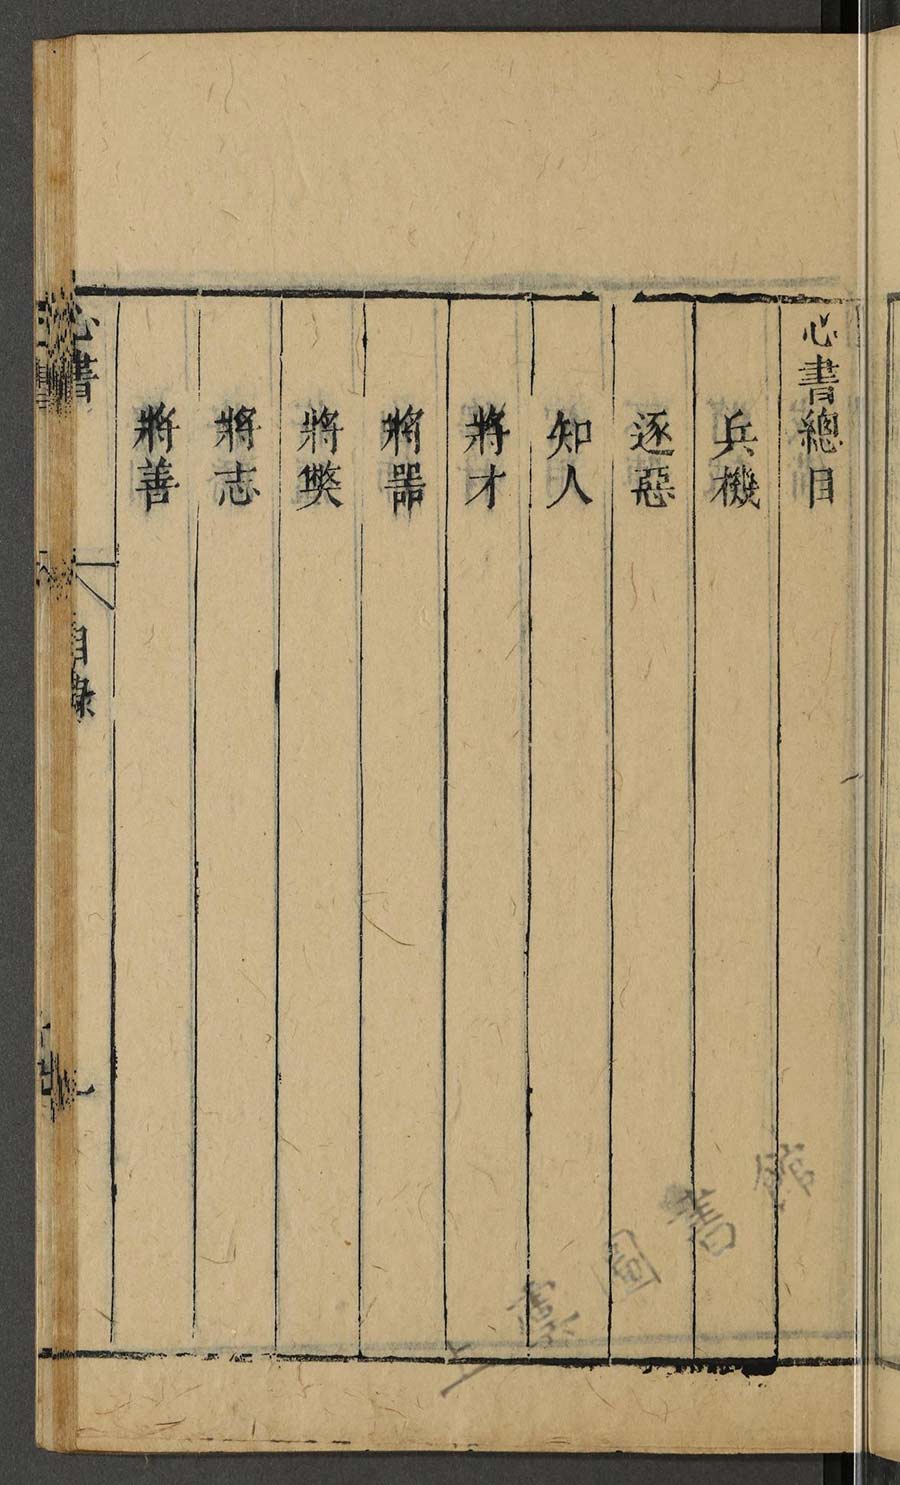 心書總目
兵機
逐惡
知人
將才
將器
將獘
將志
將善
心書
目錄
一
上海圖書館